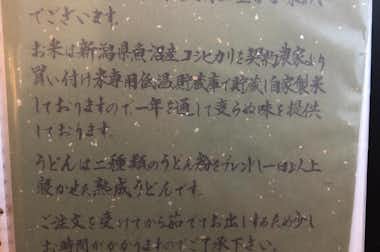 でございます。
お米は新潟県魚沼産コシヒカリを契約農家より
買い付け米専用低温貯蔵庫で貯蔵し自家製米
しておりますので、一年を通して変らぬ味を提供
しております。
うどんは二種類のうどん粉をブレンドし一日以上
寝かせた熟成うどんです。
ご注文を受けてから茹でてお出しするため少し
お時間がかかりますのでご了承下さい。